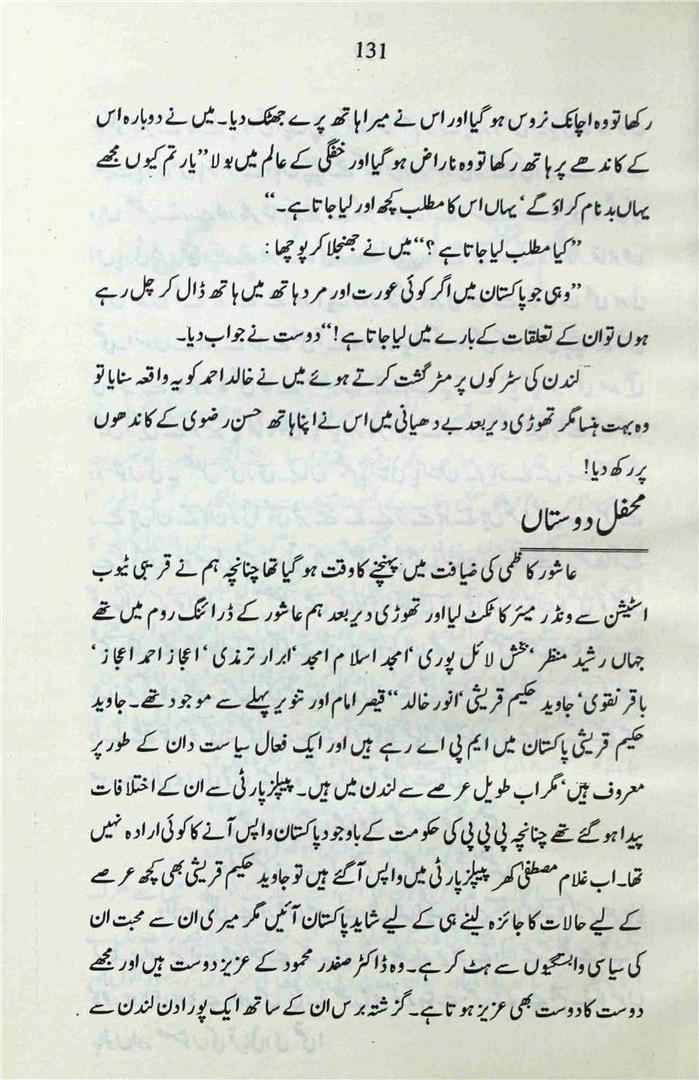 131
رکھا تو وہ اچانک نروس ہو گیا اور اس نے میرا ہاتھ پرے جھٹک دیا۔ میں نے دوبارہ اس
کے کاندھے پر ہاتھ رکھا تو وہ ناراض ہو گیا اور خفگی کے عالم میں بولا ”یار تم کیوں مجھے
یہاں بدنام کراؤ گے‘ یہاں اس کا مطلب کچھ اور لیا جاتا ہے۔“
”کیا مطلب لیا جاتا ہے؟“ میں نے جھنجلا کر پوچھا:
”وہی جو پاکستان میں اگر کوئی عورت اور مرد ہاتھ میں ہاتھ ڈال کر چل رہے
ہوں تو ان کے تعلقات کے بارے میں لیا جاتا ہے!“ دوست نے جواب دیا۔
لندن کی سڑکوں پر مٹر گشت کرتے ہوئے میں نے خالد احمد کو یہ واقعہ سنایا تو
وہ بہت ہنسا مگر تھوڑی دیر بعد بے دھیانی میں اس نے اپنا ہاتھ حسن رضوی کے کاندھوں
پر رکھ دیا!
محفل دوستاں
عاشور کاظمی کی ضیافت میں پہنچنے کا وقت ہو گیا تھا چنانچہ ہم نے قریبی ٹیوب
اسٹیشن سے ونڈر میئر کا ٹکٹ لیا اور تھوڑی دیر بعد ہم عاشور کے ڈرائنگ روم میں تھے
جہاں رشید منظر‘ بخش لائل پوری‘ امجد اسلام امجد‘ ابرار ترمذی‘ اعجاز احمد اعجاز‘
باقر نقوی‘ جاوید حکیم قریشی‘ انور خالد‘‘ قیصر امام اور تنویر پہلے سے موجود تھے۔ جاوید
حکیم قریشی پاکستان میں ایم پی اے رہے ہیں اور ایک فعال سیاست دان کے طور پر
معروف ہیں‘ مگر اب طویل عرصے سے لندن میں ہیں۔ پیپلز پارٹی سے ان کے اختلافات
پیدا ہو گئے تھے چنانچہ پی پی پی کی حکومت کے باوجود پاکستان واپس آنے کا کوئی ارادہ نہیں
تھا۔ اب غلام مصطفیٰ کھر پیپلز پارٹی میں واپس آ گئے ہیں تو جاوید حکیم قریشی بھی کچھ عرصے
کے لیے حالات کا جائزہ لینے ہی کے لیے شاید پاکستان آئیں مگر میری ان سے محبت ان
کی سیاسی وابستگیوں سے ہٹ کر ہے۔ وہ ڈاکٹر صفدر محمود کے عزیز دوست ہیں اور مجھے
دوست کا دوست بھی عزیز ہوتا ہے۔ گزشتہ برس ان کے ساتھ ایک پورا دن لندن سے